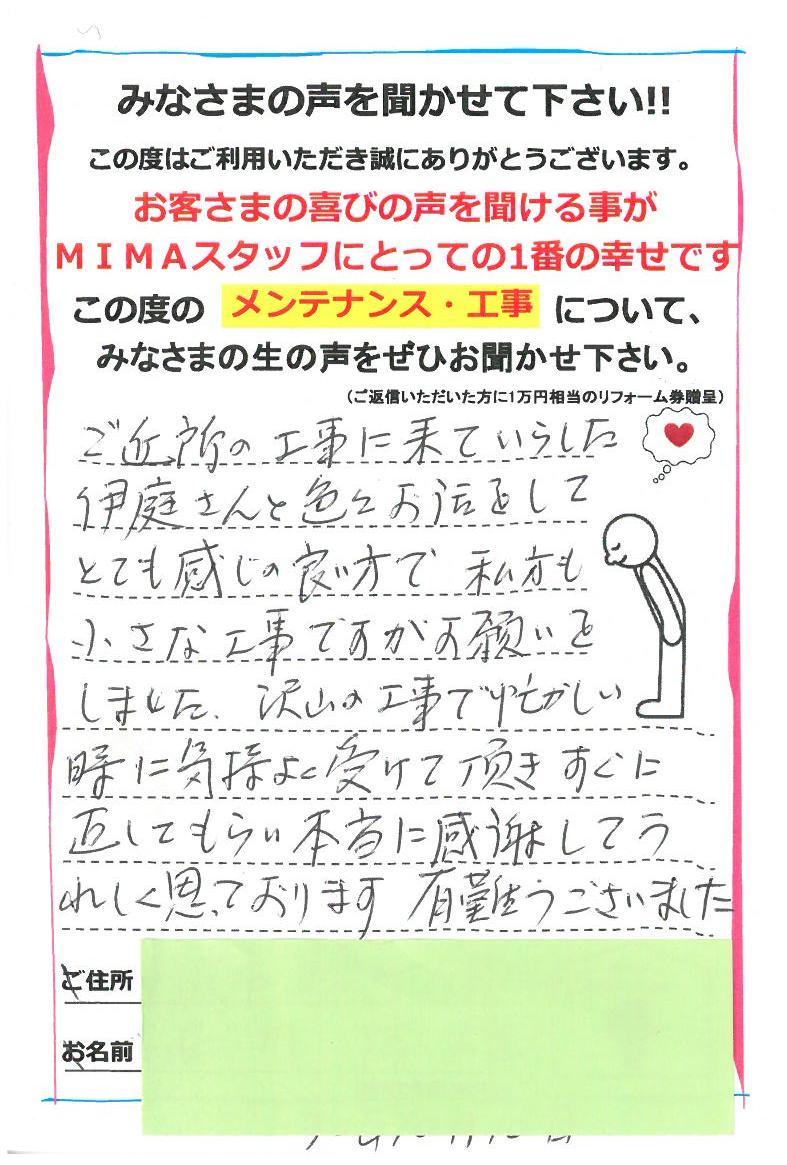 みなさまの声を聞かせて下さい!!
この度はご利用いただき誠にありがとうございます。
お客さまの喜びの声を聞ける事が
ＭＩＭＡスタッフにとっての1番の幸せです
この度の メンテナンス・工事 について、
みなさまの生の声をぜひお聞かせ下さい。
（ご返信いただいた方に1万円相当のリフォーム券贈呈）
ご近所の工事に来ていらした
伊庭さんと色々お話をして
とても感じの良い方で 私方も
小さな工事ですがお願いを
しました. 沢山の工事で忙がしい
時に気持よく受けて頂きすぐに
してもらい本当に感謝してう
れしく思っております 有難うございました
ご住所
お名前